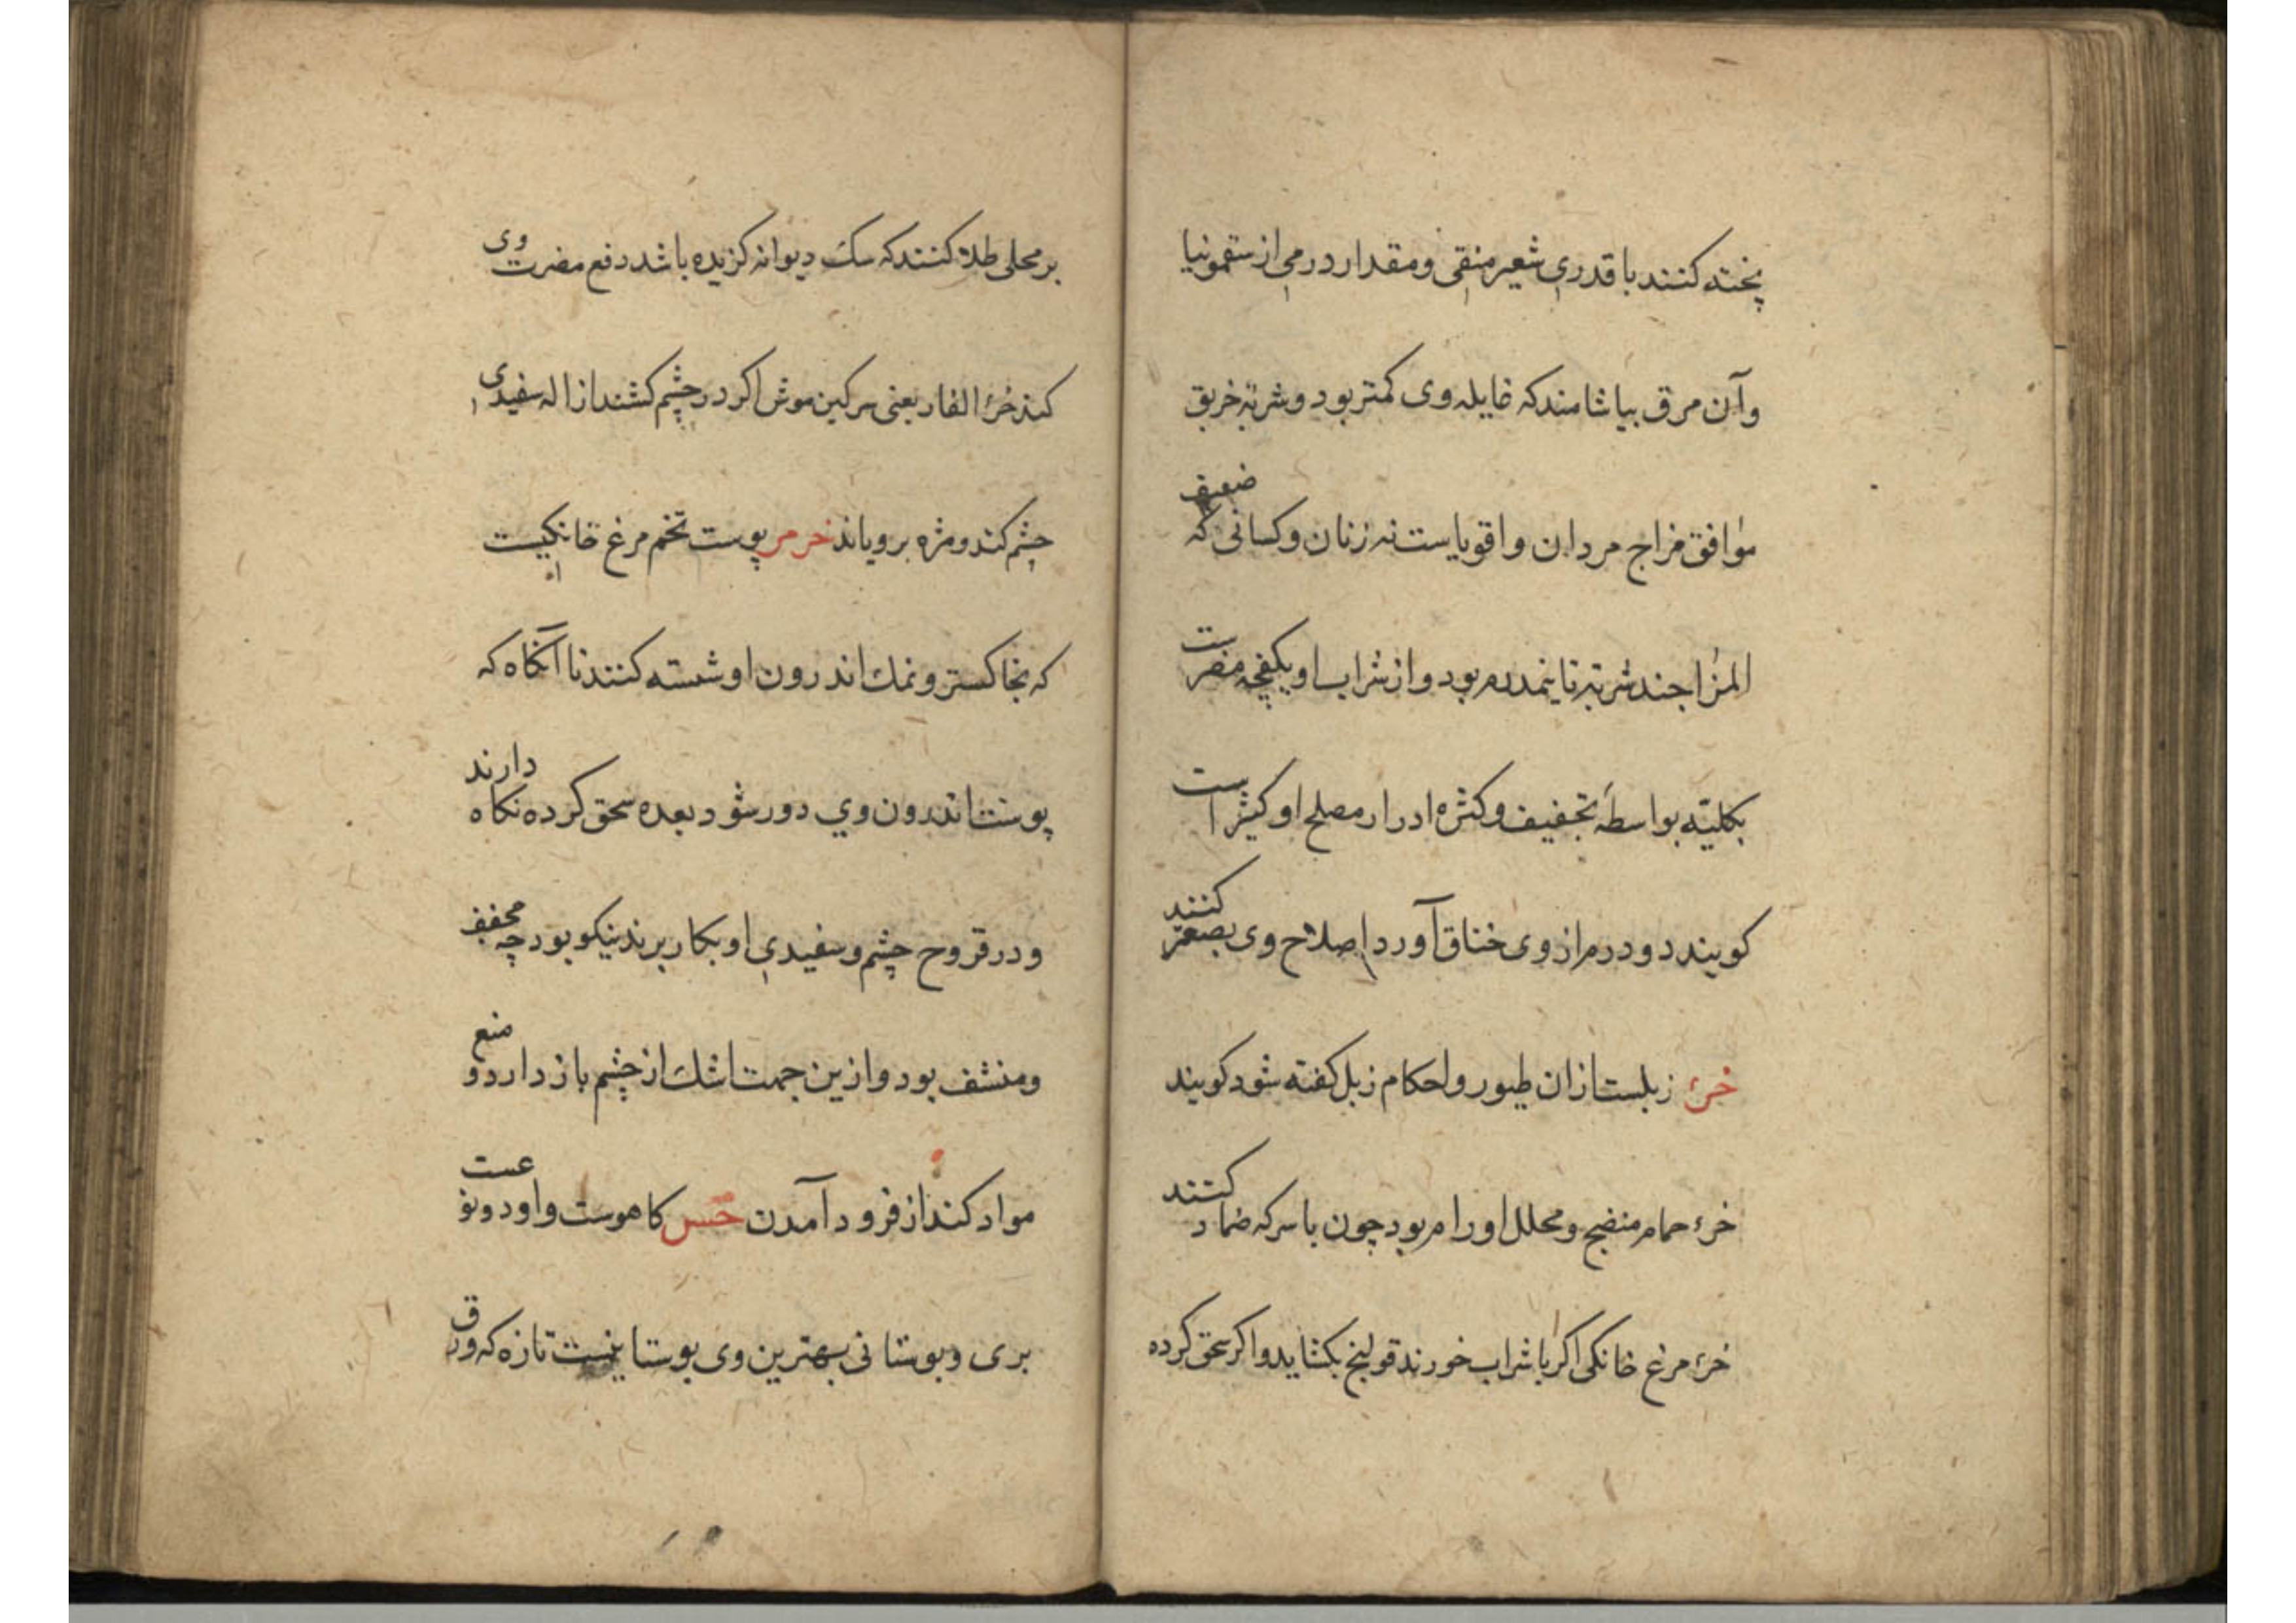 پخته کنند با قدری شعیر منقی و مقدار درمی از سقمونیا
و آن مرق بیاشامند که غایله وی کمتر بود و شربة خربق
موافق مزاج مردان و اقویاست نه زنان و کسانی که ضعیف
المزاجند شربة تا نیمدرم بود و از شراب او یکفچه مضرست
بکلیّه بواسطهٔ تجفیف و کثرة ادرار مصلح او کثیراست
کویند دو درم از وی خناق آورد اصلاح وی بصعتر کنند
خرء زبلست از ان طیور و احکام زبل کفته شود کویند
خرء حمام منضج و محلل اورام بود چون با سرکه ضماد کنند
خرء مرغ خانکی اکر با شراب خورند قولنج بکشاید و اکر سحق کرده
بر محلی طلا کنند که سک دیوانه کزیده باشد دفع مضرت وی
کند خرء الفار یعنی سرکین موش اکر در چشم کشند ازاله سفیدی
چشم کند و مژه برویاند خرمر پوست تخم مرغ خانکیست
که بخاکستر و نمک اندرون او شسته کنند تا آنکاه که
پوست اندرون وی دور شود بعده سحق کرده نکاه دارند
و در قروح چشم و سفیدی او بکار برند نیکو بود چه مجفف
و منشف بود و ازین جهت اشک از چشم باز دارد و منع
مواد کند از فرود آمدن خس کاهوست و او دو نوعست
بری و بوستانی بهترین وی بوستانیست تازه که ورق